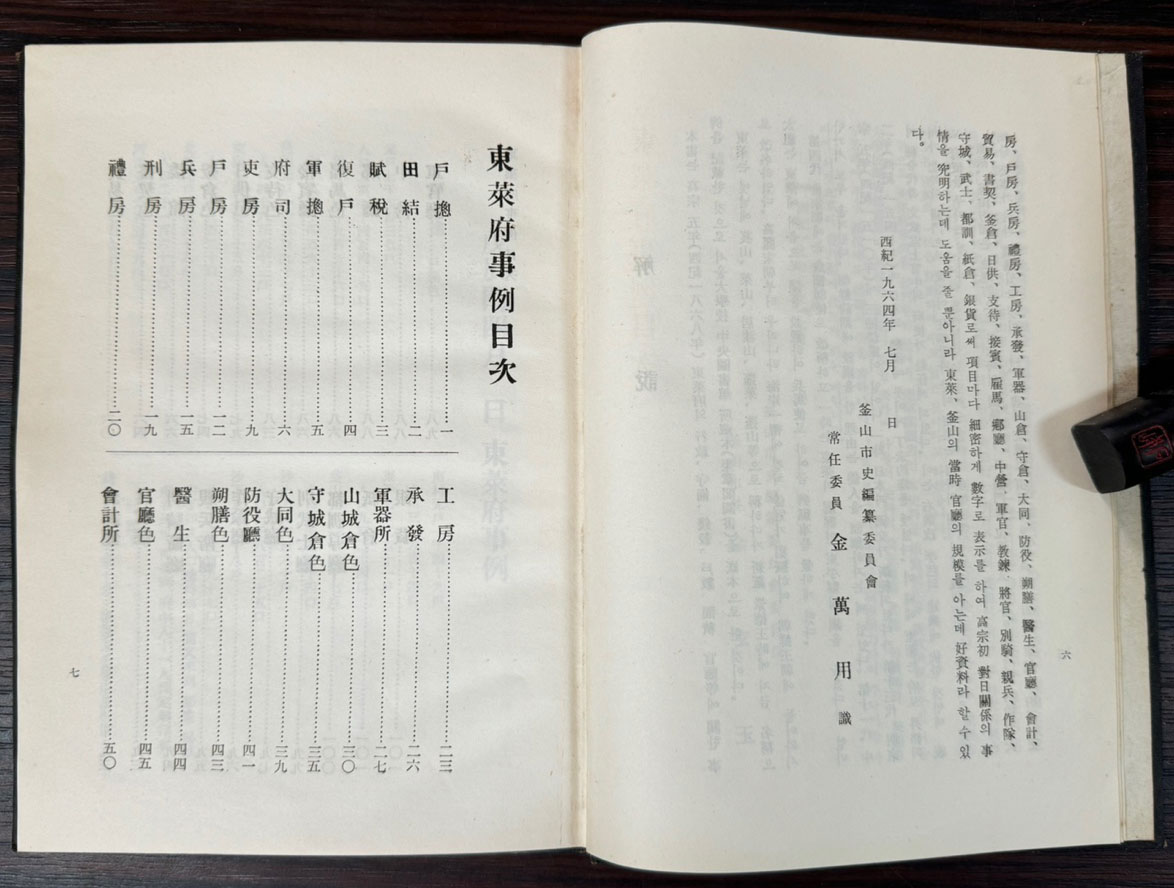 房、戶房、兵房、禮房、工房、承發、軍器、山倉、守倉、大同、防役、朔膳、醫生、官廳、會計、
貿易、書契、釜倉、日供、支待、接賓、雇馬、鄕廳、中營、軍官、敎鍊、將官、別騎、親兵、作隊、
守城、武士、都訓、紙倉、銀貨로써 項目마다 細密하게 數字로 表示를 하여 高宗初 對日關係의 事
情을 究明하는데 도움을 줄 뿐아니라 東萊、釜山의 當時 官廳의 規模를 아는데 好資料라 할 수 있
다。
西紀一九六四年 七月 日
釜山市史編纂委員會
常任委員 金萬用 識
六
東萊府事例目次
戶摠……一
田結……二
賦稅……三
復戶……四
軍摠……五
府司……六
吏房……九
戶房……一二
兵房……一五
刑房……一九
禮房……二〇
工房……二三
承發……二六
軍器所……二七
山城倉色……三〇
守城倉色……三五
大同色……三九
防役廳……四一
朔膳色……四三
醫生……四四
官廳色……四五
會計所……五〇
七